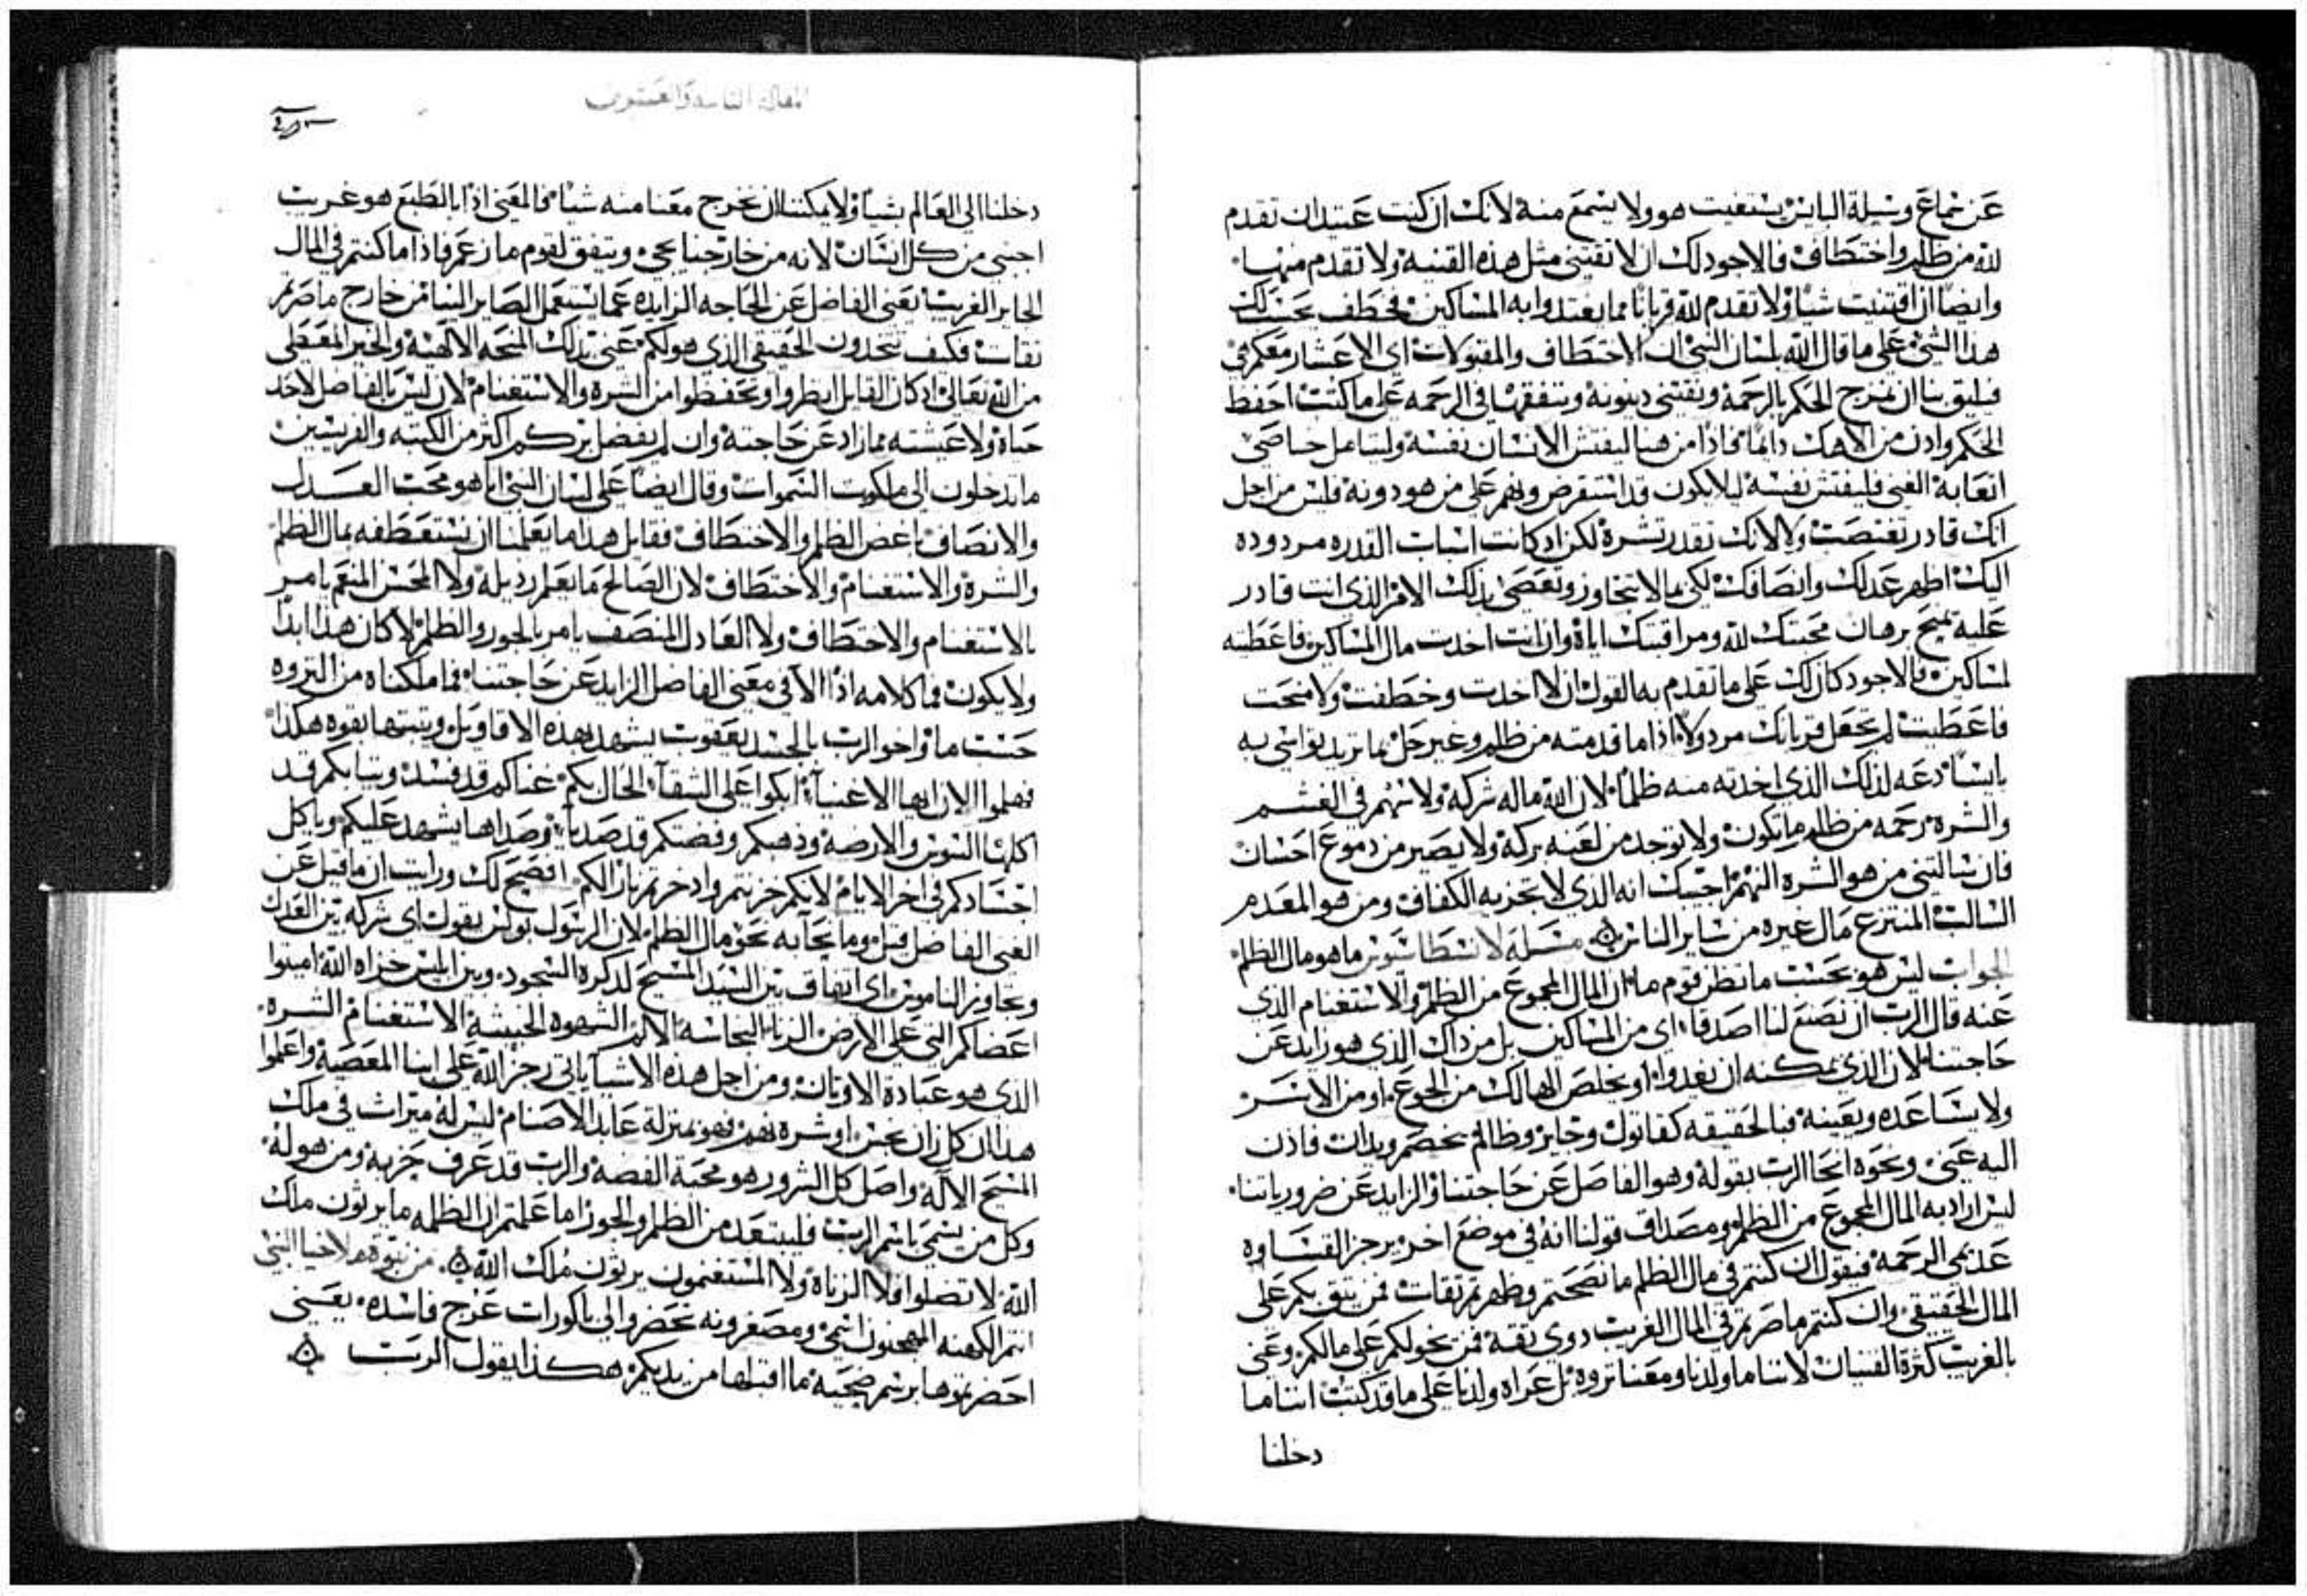 عن سماع وسيلة البايس يستغيث هو ولا يسمع منه لانك ان كنت عتيد ان تقدم
لله من ظلم واختطاف فالاجود لك ان لا تقتني مثل هذه القنيه ولا تقدم منها
وايضا ان اقتنيت شيا ولا تقدم لله قربانا مما يعتدوا به المساكين فخطف يحسب لك
هذا الشي على ما قال الله بلسان النبي ان الاختطاف والمقبولات اي الاعشار معكم في
فيليق بنا ان نمزج الحكم بالرحمة ونقتني دينونة وننفقها في الرحمه على ما كتبت احفظ
الحكم وادن من الاهك دايما فاذا من هنا ليفتش الانسان نفسه وليتامل خاصي
اتعابه الغني فليفتش نفسه ليلا يكون قد استقرض ونهم على من هو دونه فليس من اجل
انك قادر تغتصب ولا لانك تقدر تشره لكن اد كانت اسباب القدره مردوده
اليك اظهر عدلك وانصافك لكي بما لا تتجاوز وتعصي بذلك الامر الذي انت قادر
عليه تميح برهان محبتك لله ومراقبتك اياه وان انت اخدت مال المساكين فاعطيته
لمساكين فالاجود كان لك على ما تقدم به القول ان لا اخدت وخطفت ولا منحت
فاعطيت لم تجعل قربانك مردولا اذا ما قدمته من ظلم وغير حل بما تريد تواسي به
بايسا دعه لذلك الذي اخدته منه ظلما لان الله ماله شركه ولا سهم في الغشم
والشره رحمه من ظلم ما تكون ولا توجد من لعنه بركه ولا يصير من دموع احسان
فان سالتني من هو الشره النهم اجبتك انه الذي لا تجزيه الكفاف ومن هو المعدم
السالب المنتزع مال غيره من ساير الناس مسله لانسطاسيوس ما هو مال الظلم
الجواب ليس هو بحسب ما تظن قوم ما ان المال المجموع من الظلم والاستغنام الذي
عنه قال الرب ان نصنع لنا اصدقا اي من المساكين بل من داك الذي هو زايد عن
حاجتنا لان الذي يمكنه ان يغدوا او يخلص الهالك من الجوع او من الاسر
ولا يساعده ويعينه فبالحقيقه كقاتول وجاير وظالم يخصم ويدان فاذن
اليه عنى ونحوه انحا الرب بقوله وهو الفاصل عن حاجتنا والزايد عن ضرورياتنا
ليس اراد به المال المجموع من الظلم ومصداق قولنا انه في موضع اخر يرجز القساوه
عديمي الرحمه فيقول ان كنتم في مال الظلم ما نصحتم وظهرتم ثقات فمن يثق بكم على
المال الحقيقي وان كنتم ما صرتم في المال الغريب دوي ثقة فمن يخولكم على مالكم وعنى
بالغريب كثرة القنيان لاننا ما ولدنا ومعنا ثروه بل عراه ولدنا على ما قد كتب اننا ما
دخلنا
المقاله التاسعه والعشرون
دخلنا الي العالم بشيا ولا يمكننا ان نخرج معنا منه شيا فالمغنى اذا بالطبع هو غريب
اجنبي من كل انسان لانه من خارجنا يجي ويتفق لقوم ما زعم فاذا ما كنتم في المال
الجاير الغريب يعني الفاضل عن الحاجه الزايده عما يستعمل الصاير الينا من خارج ما صرتم
ثقات فكيف تتخدون الحقيقي الذي هو لكم عنى بذلك المنحه الالهيه والخير المعطى
من الله تعالى اد كان القايل انظروا وتحفظوا من الشره والاستغنام لان ليس بالفاضل لاحد
حياه ولا عيشته مما زاد عن حاجته وان لم يفضل بركم اكثر من الكتبه والفريسيين
ما تدخلون الى ملكوت السموات وقال ايضا على لسان النبي انا هو محب العدل
والانصاف باغض الظلم والاختطاف فقايل هذا ما يعلمنا ان نستعطفه بمال الظلم
والشره والاستغنام والاختطاف لان الصالح ما يعلم رذيله ولا المحسن المنعم يامر
بالاستغنام والاختطاف ولا العادل المنصف يامر بالجور والظلم لا كان هذا ابدا
ولا يكون فما كلامه اذا الا في معنى الفاضل الزايد عن حاجتنا فما ملكناه من الثروه
حسب ما واخو الرب بالجسد يعقوب يشهد بهذه الاقاويل ويثبتها بقوه هكذا
فهلموا الان ايها الاغنيا ابكوا على الشقآ الحال بكم غناكم قد فسد وثيابكم قد
اكلها السوس والارضه وذهبكم وفضتكم قد صديا وصداها يشهد عليكم وياكل
اجسادكم في اخر الايام لانكم خزنتم وادخرتم نار الكم افصح لك ورايت ان ما قيل عن
الغنى الفاضل قيل وما نحآ به نحو مال الظلم لان الرسول بولس يقول اي شركه بين العدل
وتجاوز الناموس اي اتفاق بين السيد المسيح لدكره السجود وبين ابليس خزاه الله امينوا
اعضاكم التي على الارض الزنا النجاسه الالم الشهوه الخبيثه الاستغنام الشره
الذي هو عبادة الاوثان ومن اجل هذه الاشيا ياتي رجز الله على ابنا المعصيه واعلموا
هذا ان كل زان نجس او شره نهم فهو بمنزلة عابد الاصنام ليس له ميراث في ملك
المسيح الاله واصل كل الشرور هو محبة الفضه والرب قد عرف حزبه ومن هو له
وكل من يسمي باسم الرب فليبتعد من الظلم والجور اما علمتم ان الظلمه ما يرثون ملك
الله لا تضلوا فلا الزناه ولا المستغنمون يرثون ملك الله من نبوة ملاخيا النبي
انتم الكهنه المهجنون اسمي ومصغرونه تحضروا الي باكورات عرج فاسده يعني
احضرتموها برسم ضحيه ما اقبلها من يديكم هكذا يقول الرب